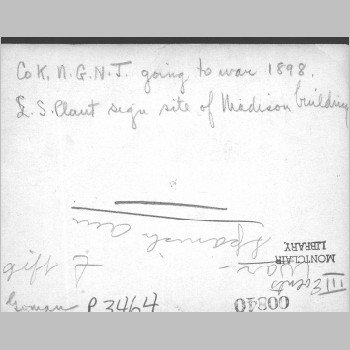 Co K, N.G.N.J. going to war 1898.
L. S. Plant sign site of Madison building
Spanish Am
War -
III Events
MONTCLAIR
LIBRARY
P3464
00840